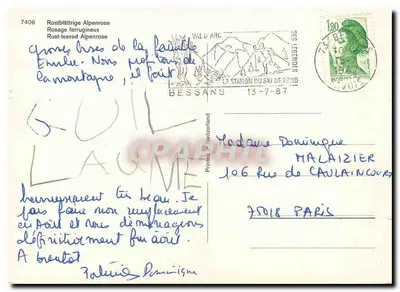 7408 Rostblättrige Alpenrose
Rosage ferrugineux
Rust-leaved Alpenrose
grosses bises de la famille
Emilie. Nous profitons de
la montagne, il fait
GUIL
LAUME
heureusement très beau. Je
vais faire mon remplacement
en Août et nous déménageons
définitivement fin août.
A bientôt
Dominique
VAL D'ARC
SES LEGENDES
LA STATION DU SKI DE FOND
BESSANS 13-7-87
1,90
Madame Dominique
MALAIZIER
106 Rue de CAULAINCOURT
75018 PARIS
CARTE-POSTALE
PHILATELIE